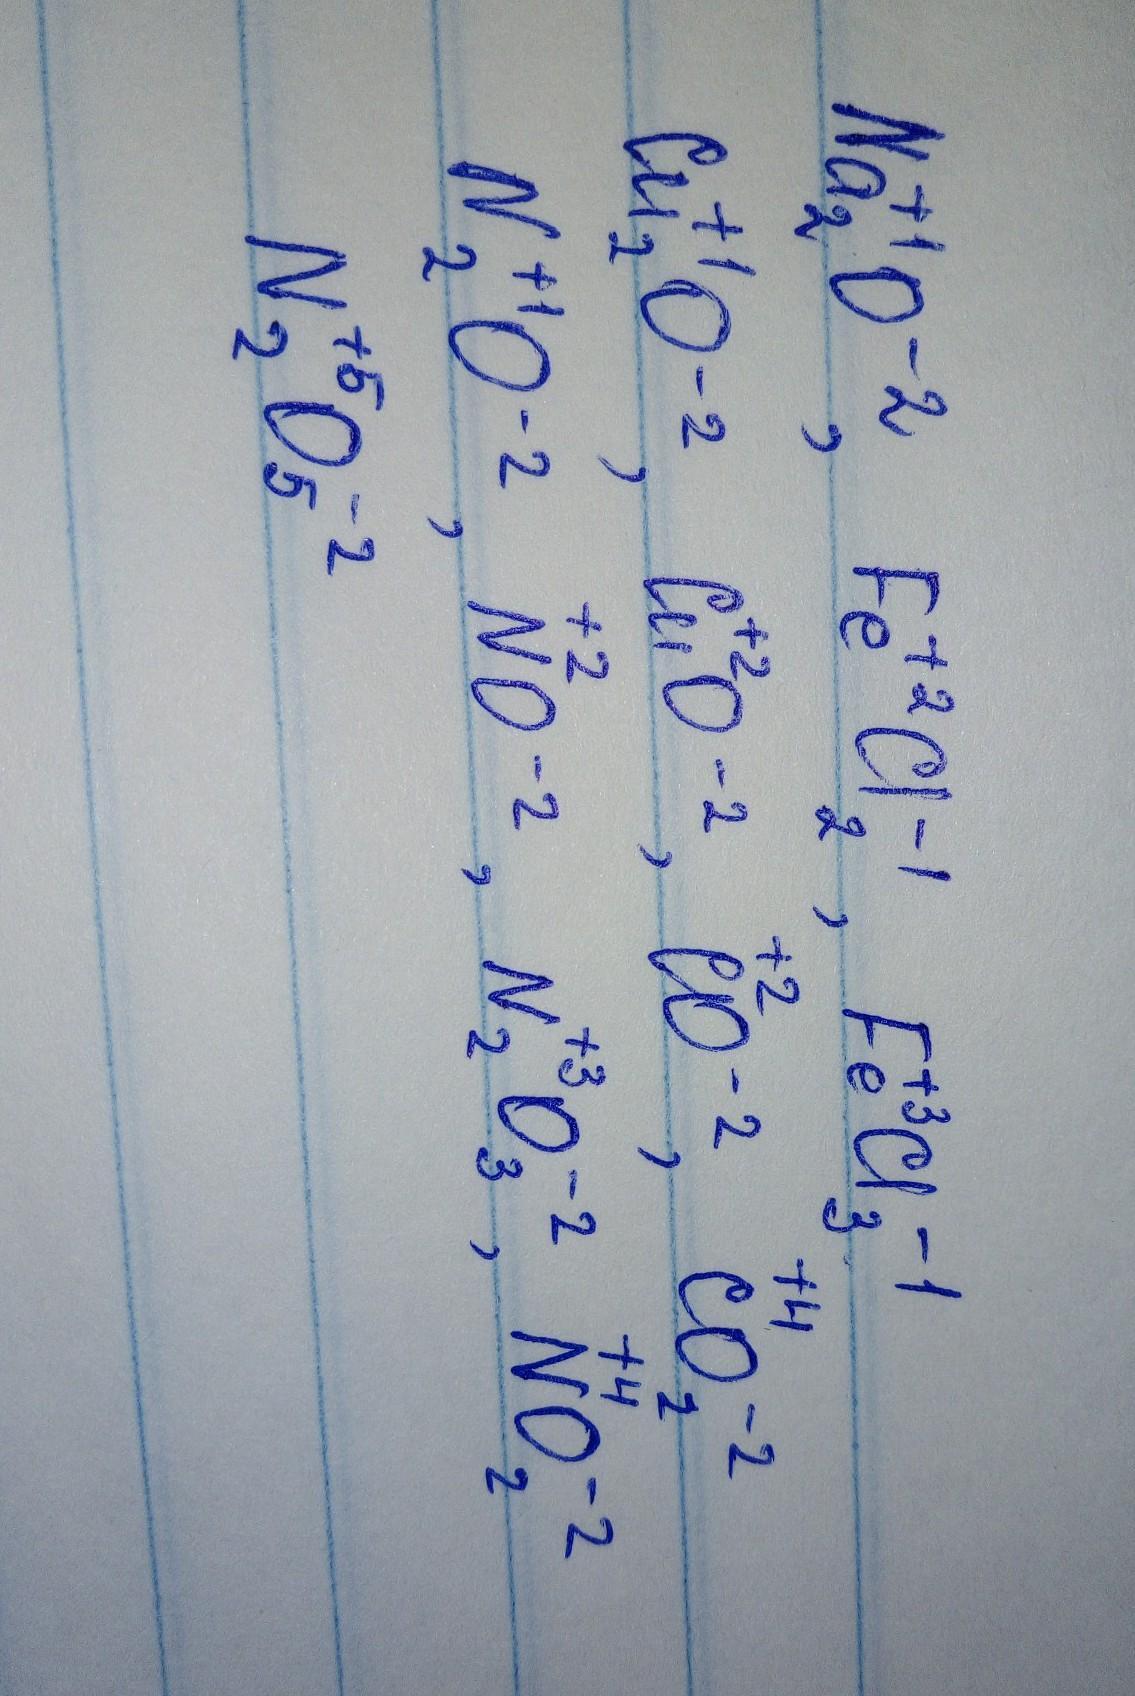 Na₂⁺¹O⁻², Fe⁺²Cl₂⁻¹, Fe⁺³Cl₃⁻¹
Cu₂⁺¹O⁻², Cu⁺²O⁻², C⁺²O⁻², C⁺⁴O₂⁻²
N₂⁺¹O⁻², N⁺²O⁻², N₂⁺³O₃⁻², N⁺⁴O₂⁻²
N₂⁺⁵O₅⁻²